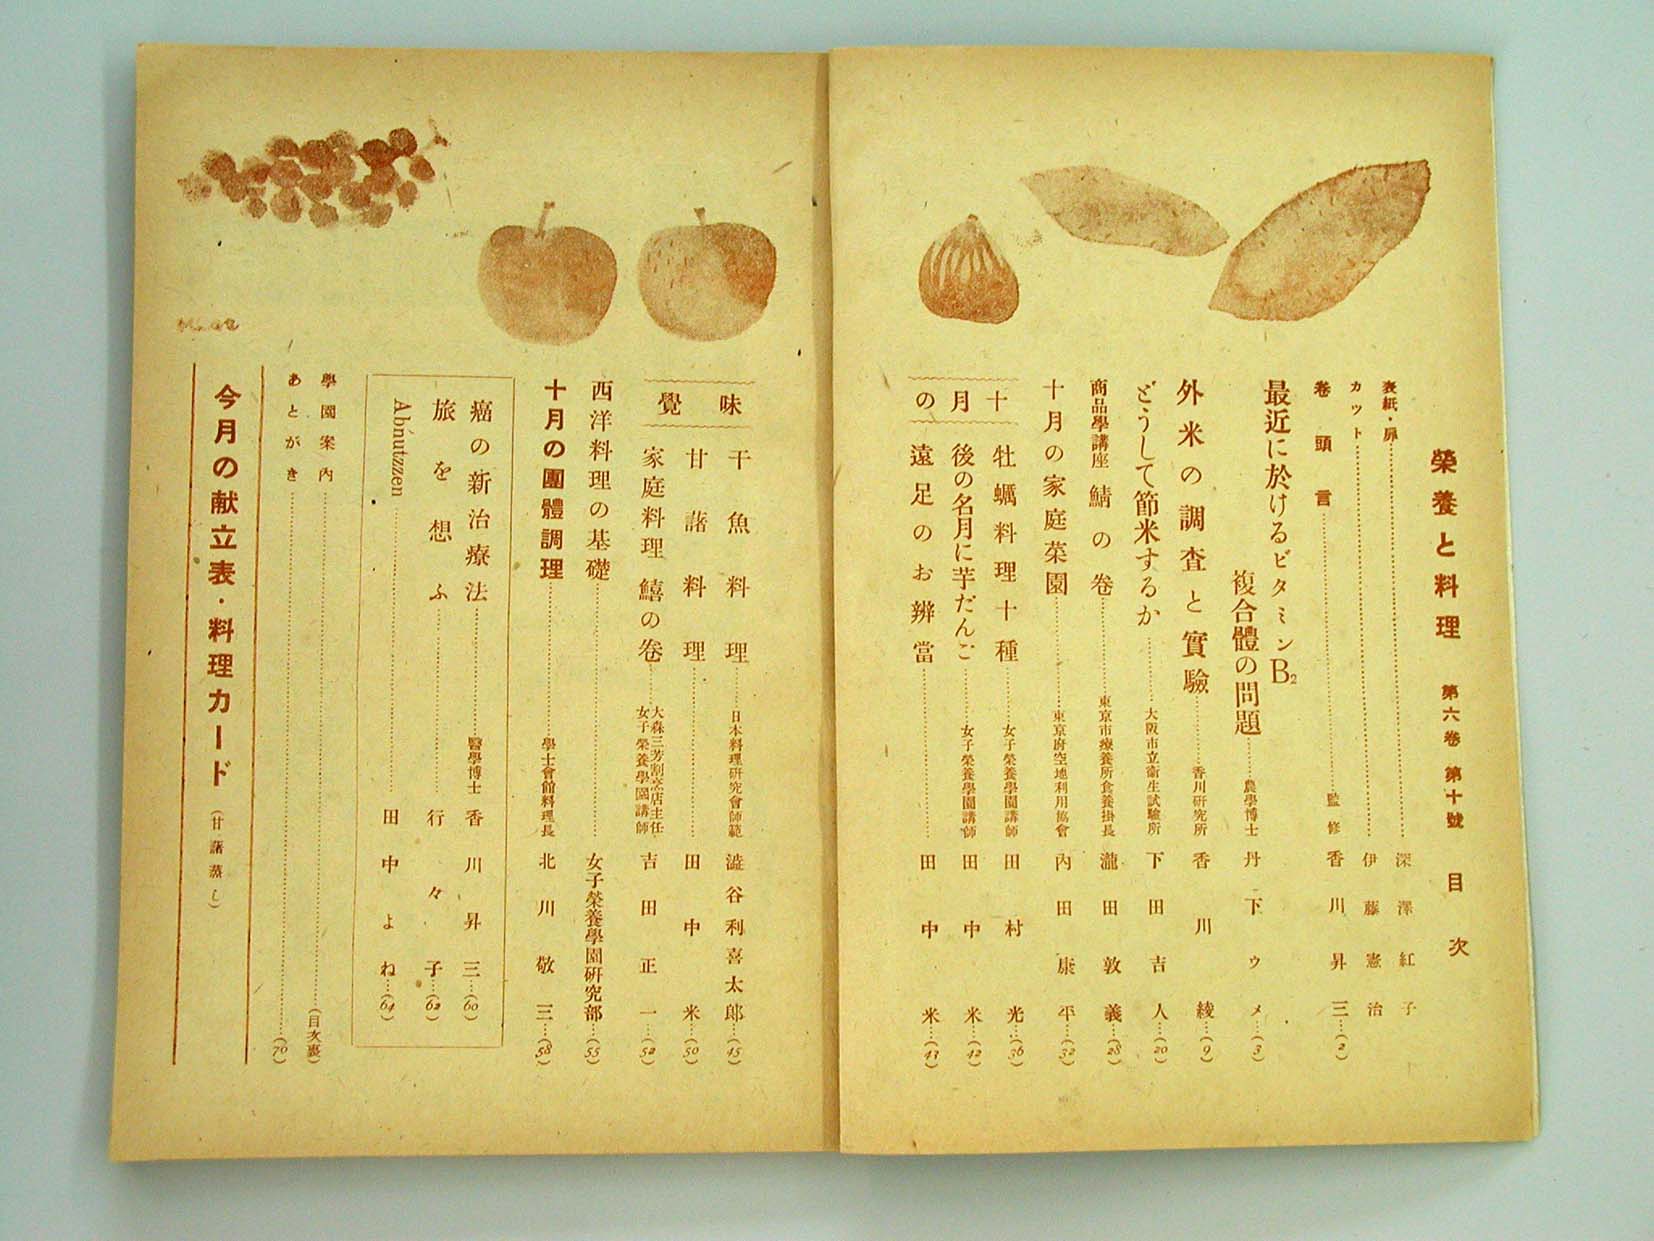 榮養と料理 第六卷 第十號 目次
表紙・扉 深澤紅子
カット 伊藤憲治
卷頭言 監修 香川昇三 (2)
最近に於けるビタミンB₂
複合體の問題 農學博士 丹下ウメ (3)
外米の調査と實驗 香川研究所 香川綾 (9)
どうして節米するか 大阪市立衞生試驗所 下田吉人 (20)
商品學講座 鯖の卷 東京市療養所食養掛長 瀧田敦義 (28)
十月の家庭菜園 東京府空地利用協會 內田康平 (32)
十月の
牡蠣料理十種 女子榮養學園講師 田村光 (36)
後の名月に芋だんご 女子榮養學園講師 田中米 (42)
遠足のお辨當 田中米 (43)
味覺
干魚料理 日本料理研究會師範 澁谷利喜太郎 (45)
甘藷料理 田中米 (50)
家庭料理 鱚の卷 大森三芳割烹店主任 女子榮養學園講師 吉田正一 (52)
西洋料理の基礎 女子榮養學園研究部 (55)
十月の團體調理 學士會館料理長 北川敬三 (58)
癌の新治療法 醫學博士 香川昇三 (60)
旅を想ふ 行々子 (62)
Abnutzzen 田中よね (64)
學園案內 (目次裏)
あとがき (70)
今月の献立表・料理カード (甘藷蒸し)